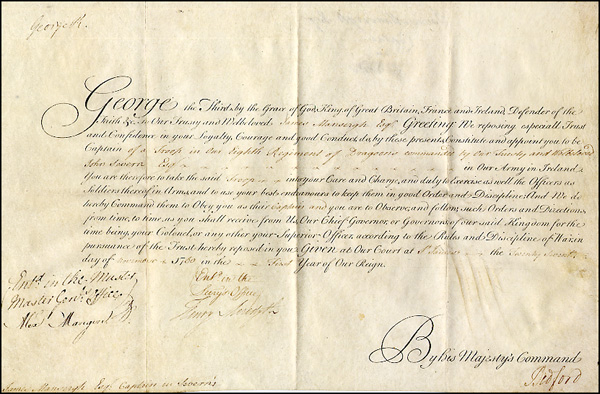 George R.
George the Third, by the Grace of God, King of Great Britain, France and Ireland, Defender of the
Faith &c. To Our Trusty and Welbeloved James Mansergh Esqr. Greeting: We reposing especial Trust
and Confidence in your Loyalty, Courage and good Conduct, do by these presents, Constitute and appoint you to be
Captain of a Troop in Our Eighth Regiment of Dragoons commanded by Our Trusty and Welbeloved
John Severn Esq. in Our Army in Ireland.
You are therefore to take the said Troop into your Care and Charge, and duly to Exercise as well the Officers as
Soldiers thereof in Arms, and to use your best endeavours to keep them in good Order and Discipline; And We do
hereby Command them to Obey you as their Captain and you are to Observe and follow such Orders and Directions
from time, to time, as you shall receive from Us, Our Chief Governor, or Governors of our said Kingdom for the
time being, your Colonel, or any other your Superior Officer, according to the Rules and Discipline of War, in
pursuance of the Trust hereby reposed in you. Given at Our Court at St. James's the Twenty Seventh
day of November 1760 in the First Year of Our Reign.
Entd. in the Muster
Master Genls. Office
Entd. in the
Office
By his Majesty's Command
Bedford
James Mansergh Esqr. Captain in Severn's